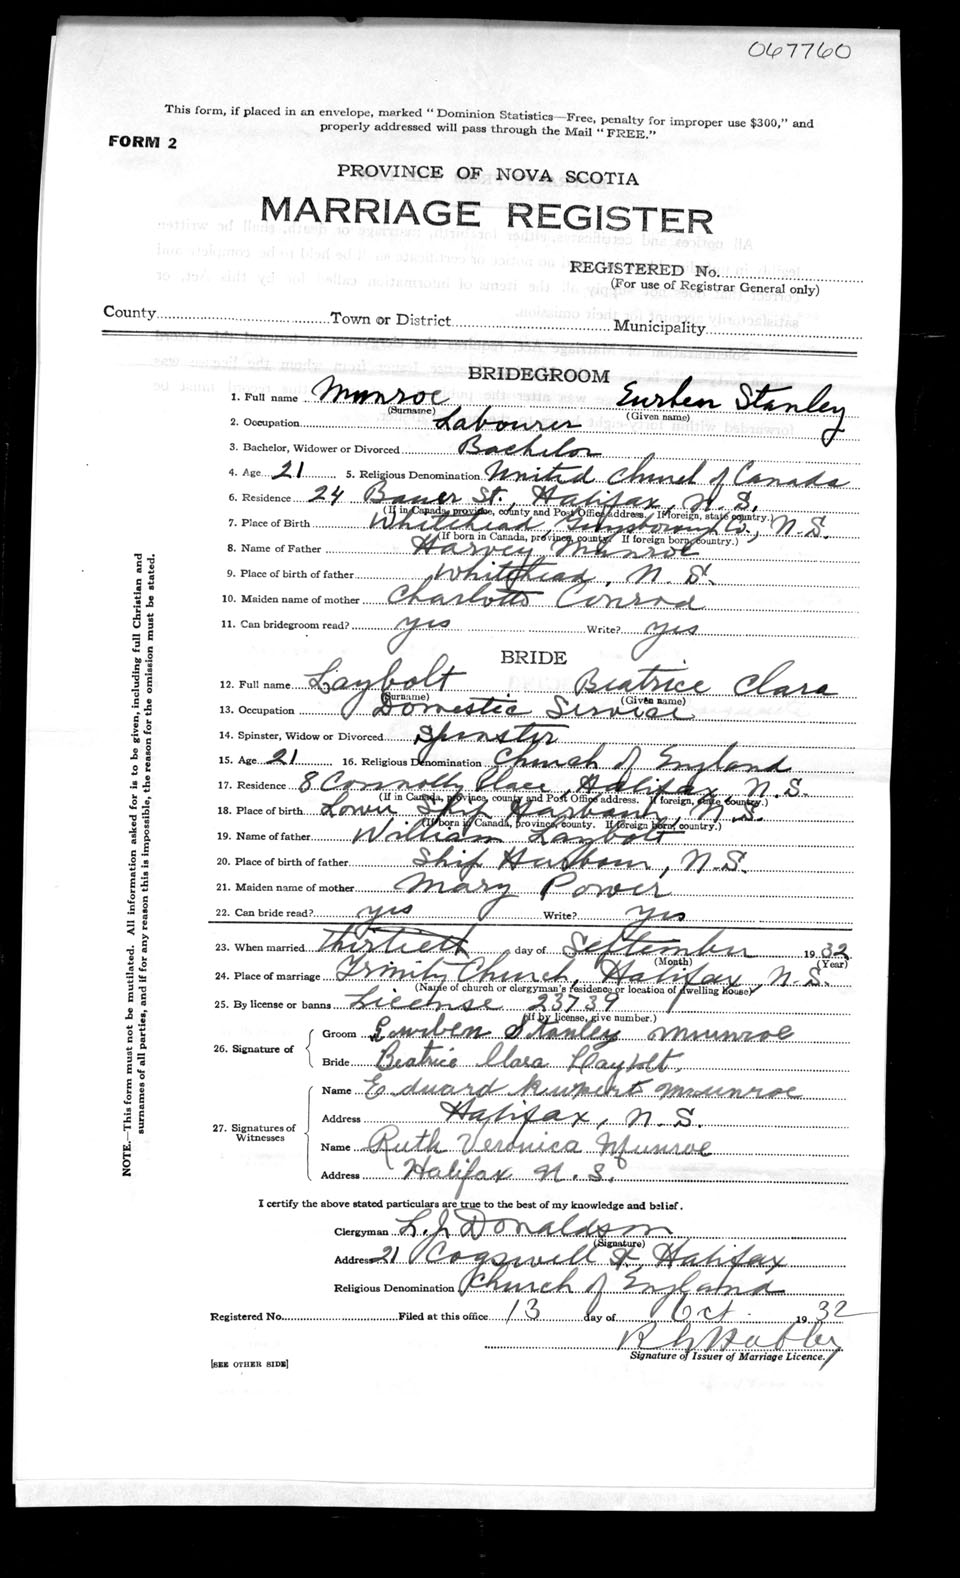 067760
This form, if placed in an envelope, marked "Dominion Statistics—Free, penalty for improper use $300," and
properly addressed will pass through the Mail "FREE."
FORM 2
PROVINCE OF NOVA SCOTIA
MARRIAGE REGISTER
REGISTERED No.
(For use of Registrar General only)
County Town or District Municipality
BRIDEGROOM
1. Full name Munroe Stanley
(Surname) (Given name)
2. Occupation Labourer
3. Bachelor, Widower or Divorced Bachelor
4. Age 21 5. Religious Denomination United Church of Canada
6. Residence 24 Bauer St., Halifax, N.S.
(If in Canada, province, county and Post Office address. If foreign, state country.)
7. Place of Birth Whitehead, Guysborough Co., N.S.
(If born in Canada, province, county. If foreign born, country.)
8. Name of Father Harvey Munroe
9. Place of birth of father Whitehead, N.S.
10. Maiden name of mother Charlotte Conrod
11. Can bridegroom read? yes Write? yes
BRIDE
12. Full name Laybolt Beatrice Clara
(Surname) (Given name)
13. Occupation Domestic Service
14. Spinster, Widow or Divorced Spinster
15. Age 21 16. Religious Denomination Church of England
17. Residence 8 Connolly Place, Halifax, N.S.
(If in Canada, province, county and Post Office address. If foreign, state country.)
18. Place of birth Lower Ship Harbour, N.S.
(If born in Canada, province, county. If foreign born, country.)
19. Name of father William Laybolt
20. Place of birth of father Ship Harbour, N.S.
21. Maiden name of mother Mary Power
22. Can bride read? yes Write? yes
23. When married Thirtieth day of September 1932
(Month) (Year)
24. Place of marriage Trinity Church, Halifax, N.S.
(Name of church or clergyman's residence or location of dwelling house)
25. By license or banns License 23739
(If by license, give number.)
26. Signature of Groom Stanley Munroe
Bride Beatrice Clara Laybolt.
27. Signatures of Witnesses
Name Edward Munroe
Address Halifax, N.S.
Name Ruth Veronica Munroe
Address Halifax N.S.
I certify the above stated particulars are true to the best of my knowledge and belief.
Clergyman L. J. Donaldson
(Signature)
Address 21 Cogswell St, Halifax
Religious Denomination Church of England
Registered No. Filed at this office 13 day of Oct. 1932
Signature of Issuer of Marriage Licence.
[SEE OTHER SIDE]
NOTE.—This form must not be mutilated. All information asked for is to be given, including full Christian and
surnames of all parties, and if for any reason this is impossible, the reason for the omission must be stated.